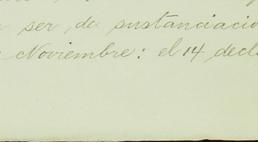 ser de sustanciacio
Noviembre: el 14 decl